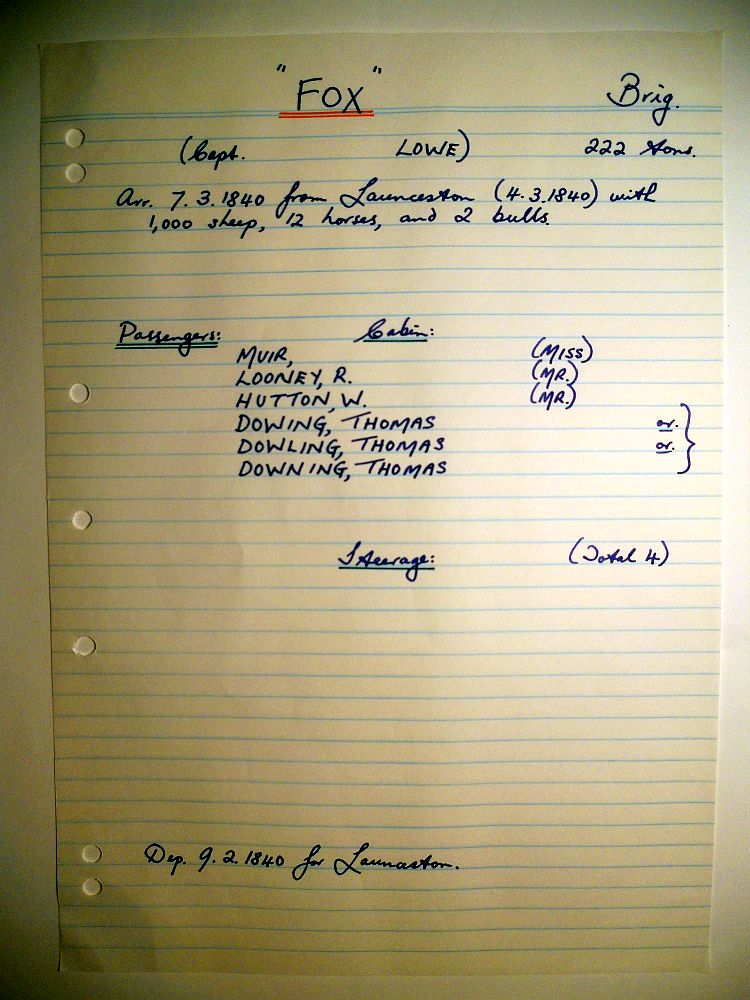 "FOX" Brig.
(Capt. LOWE) 222 tons.
Arr. 7.3.1840 from Launceston (4.3.1840) with
1,000 sheep, 12 horses, and 2 bulls.
Passengers: Cabin:
MUIR, (MISS)
LOONEY, R. (MR.)
HUTTON, W. (MR.)
DOWING, THOMAS or.
DOWLING, THOMAS or.
DOWNING, THOMAS
Steerage: (Total 4)
Dep. 9.2.1840 for Launceston.